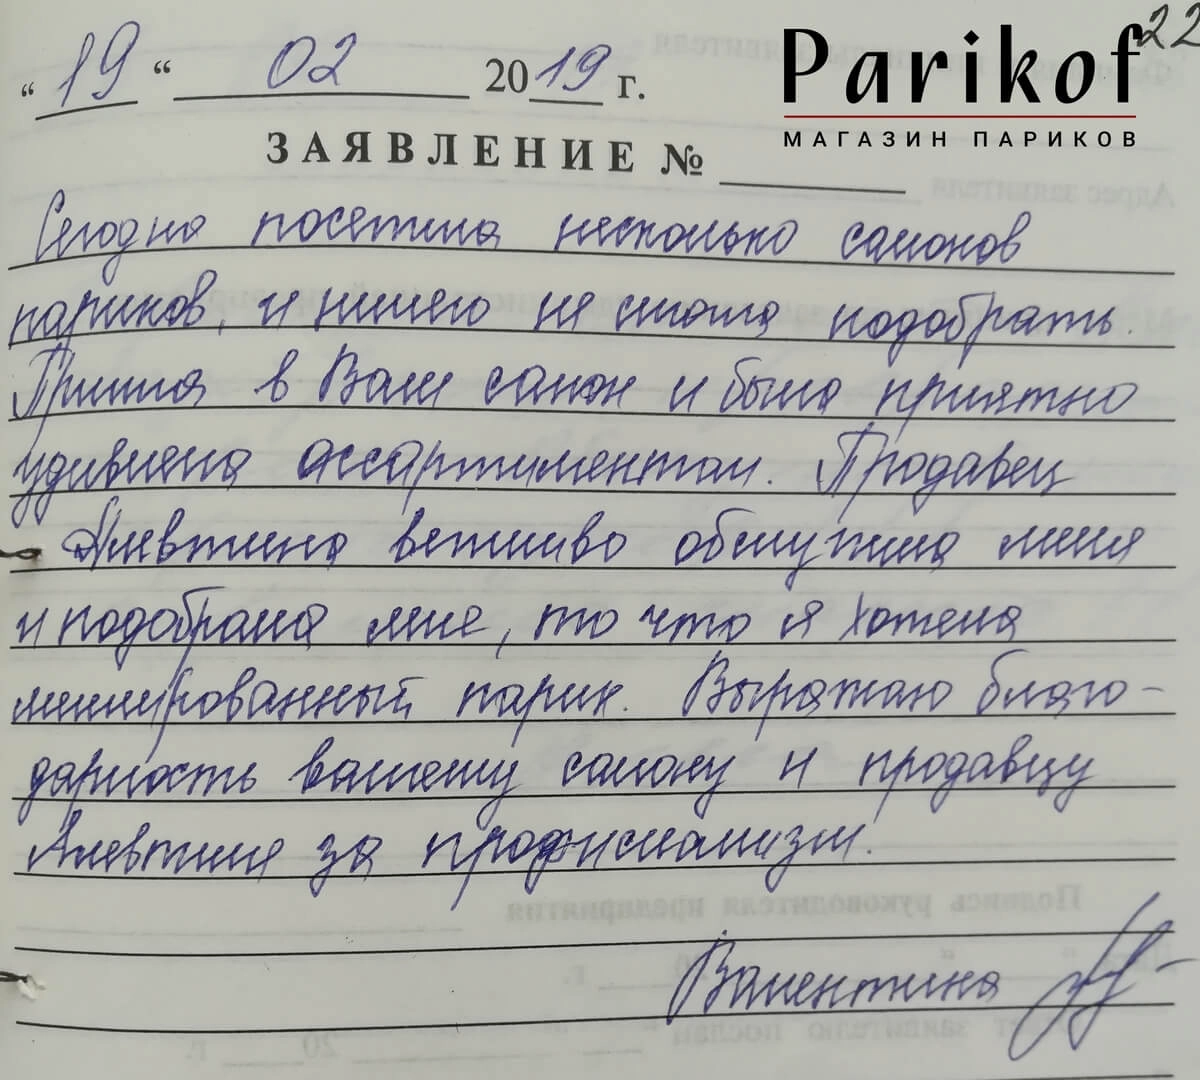 22
Parikof
МАГАЗИН ПАРИКОВ
"19" 02 2019 г.
ЗАЯВЛЕНИЕ №
Сегодня посетила несколько салонов
париков, и ничего не смогла подобрать.
Пришла в Ваш салон и была приятно
удивлена ассартиментом. Продавец
Алевтина вежливо обслужила меня
и подобрала мне, то что я хотела
милированный парик. Выражаю благо-
дарность вашему салону и продавцу
Алевтине за профисианализм.
Подпись руководителя предприятия
Валентина